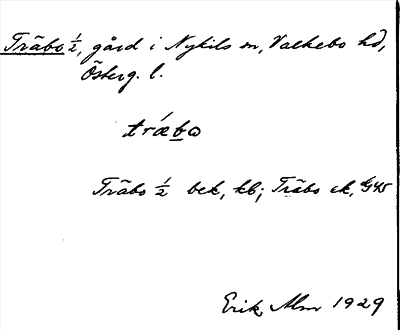 Träbo ½, gård i Nykils sn, Valkebo hd,
Österg. l.
trǽbo
Träbo ½ bek, kb; Träbo ek, G45
Erik Alm 1929